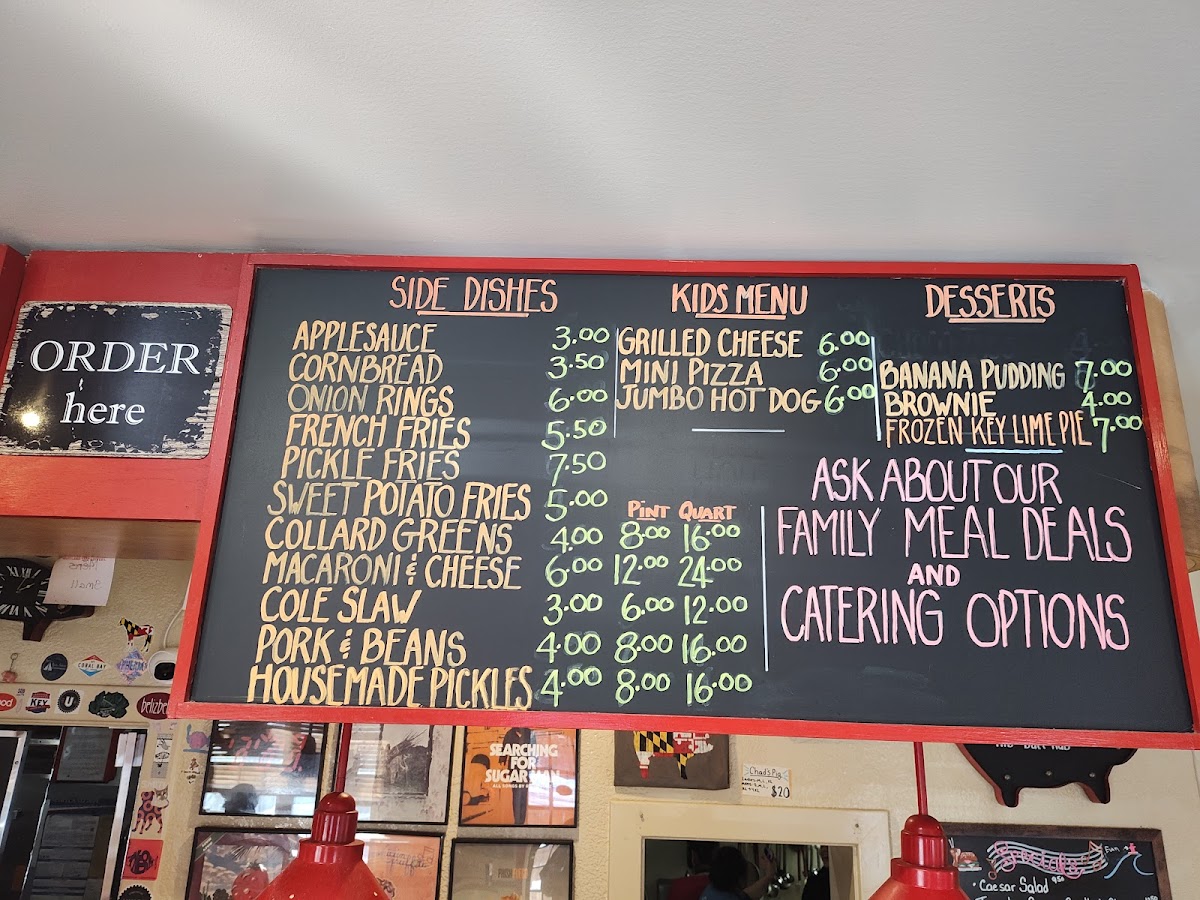 ORDER
here
SIDE DISHES
APPLESAUCE 3.00
CORNBREAD 3.50
ONION RINGS 6.00
FRENCH FRIES 5.50
PICKLE FRIES 7.50
SWEET POTATO FRIES 5.00
PINT QUART
COLLARD GREENS 4.00 8.00 16.00
MACARONI & CHEESE 6.00 12.00 24.00
COLE SLAW 3.00 6.00 12.00
PORK & BEANS 4.00 8.00 16.00
HOUSEMADE PICKLES 4.00 8.00 16.00
KIDS MENU
GRILLED CHEESE 6.00
MINI PIZZA 6.00
JUMBO HOT DOG 6.00
DESSERTS
BANANA PUDDING 7.00
BROWNIE 4.00
FROZEN KEY LIME PIE 7.00
ASK ABOUT OUR
FAMILY MEAL DEALS
AND
CATERING OPTIONS
CORAL BAY
KEY
SEARCHING
FOR
SUGAR MAN
Chad's Pig
$20
Specials
Caesar Salad